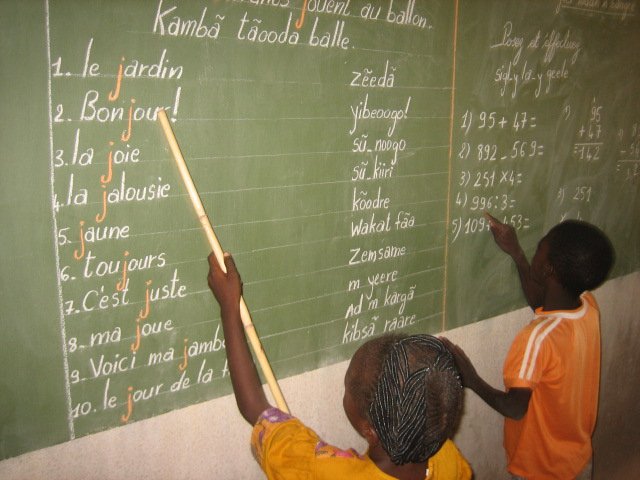 jouent au ballon.
Kambã tãooda balle.
1. le jardin zẽedã
2. Bonjour! yibeoogo!
3. la joie sũ-noogo
4. la jalousie sũ-kiiri
5. jaune kõodre
6. toujours wakat fãa
7. C'est juste zemsame
8. ma joue m yeere
9. Voici ma Ad m kãrgã
10. le jour de la kibsã raare
Posez et effectuez
sigl-y la-y geele
1) 95 + 47 =
2) 892 - 569 =
3) 251 x 4 =
4) 996 : 3 =
5) 53 =
95
+ 47
142
3) 251